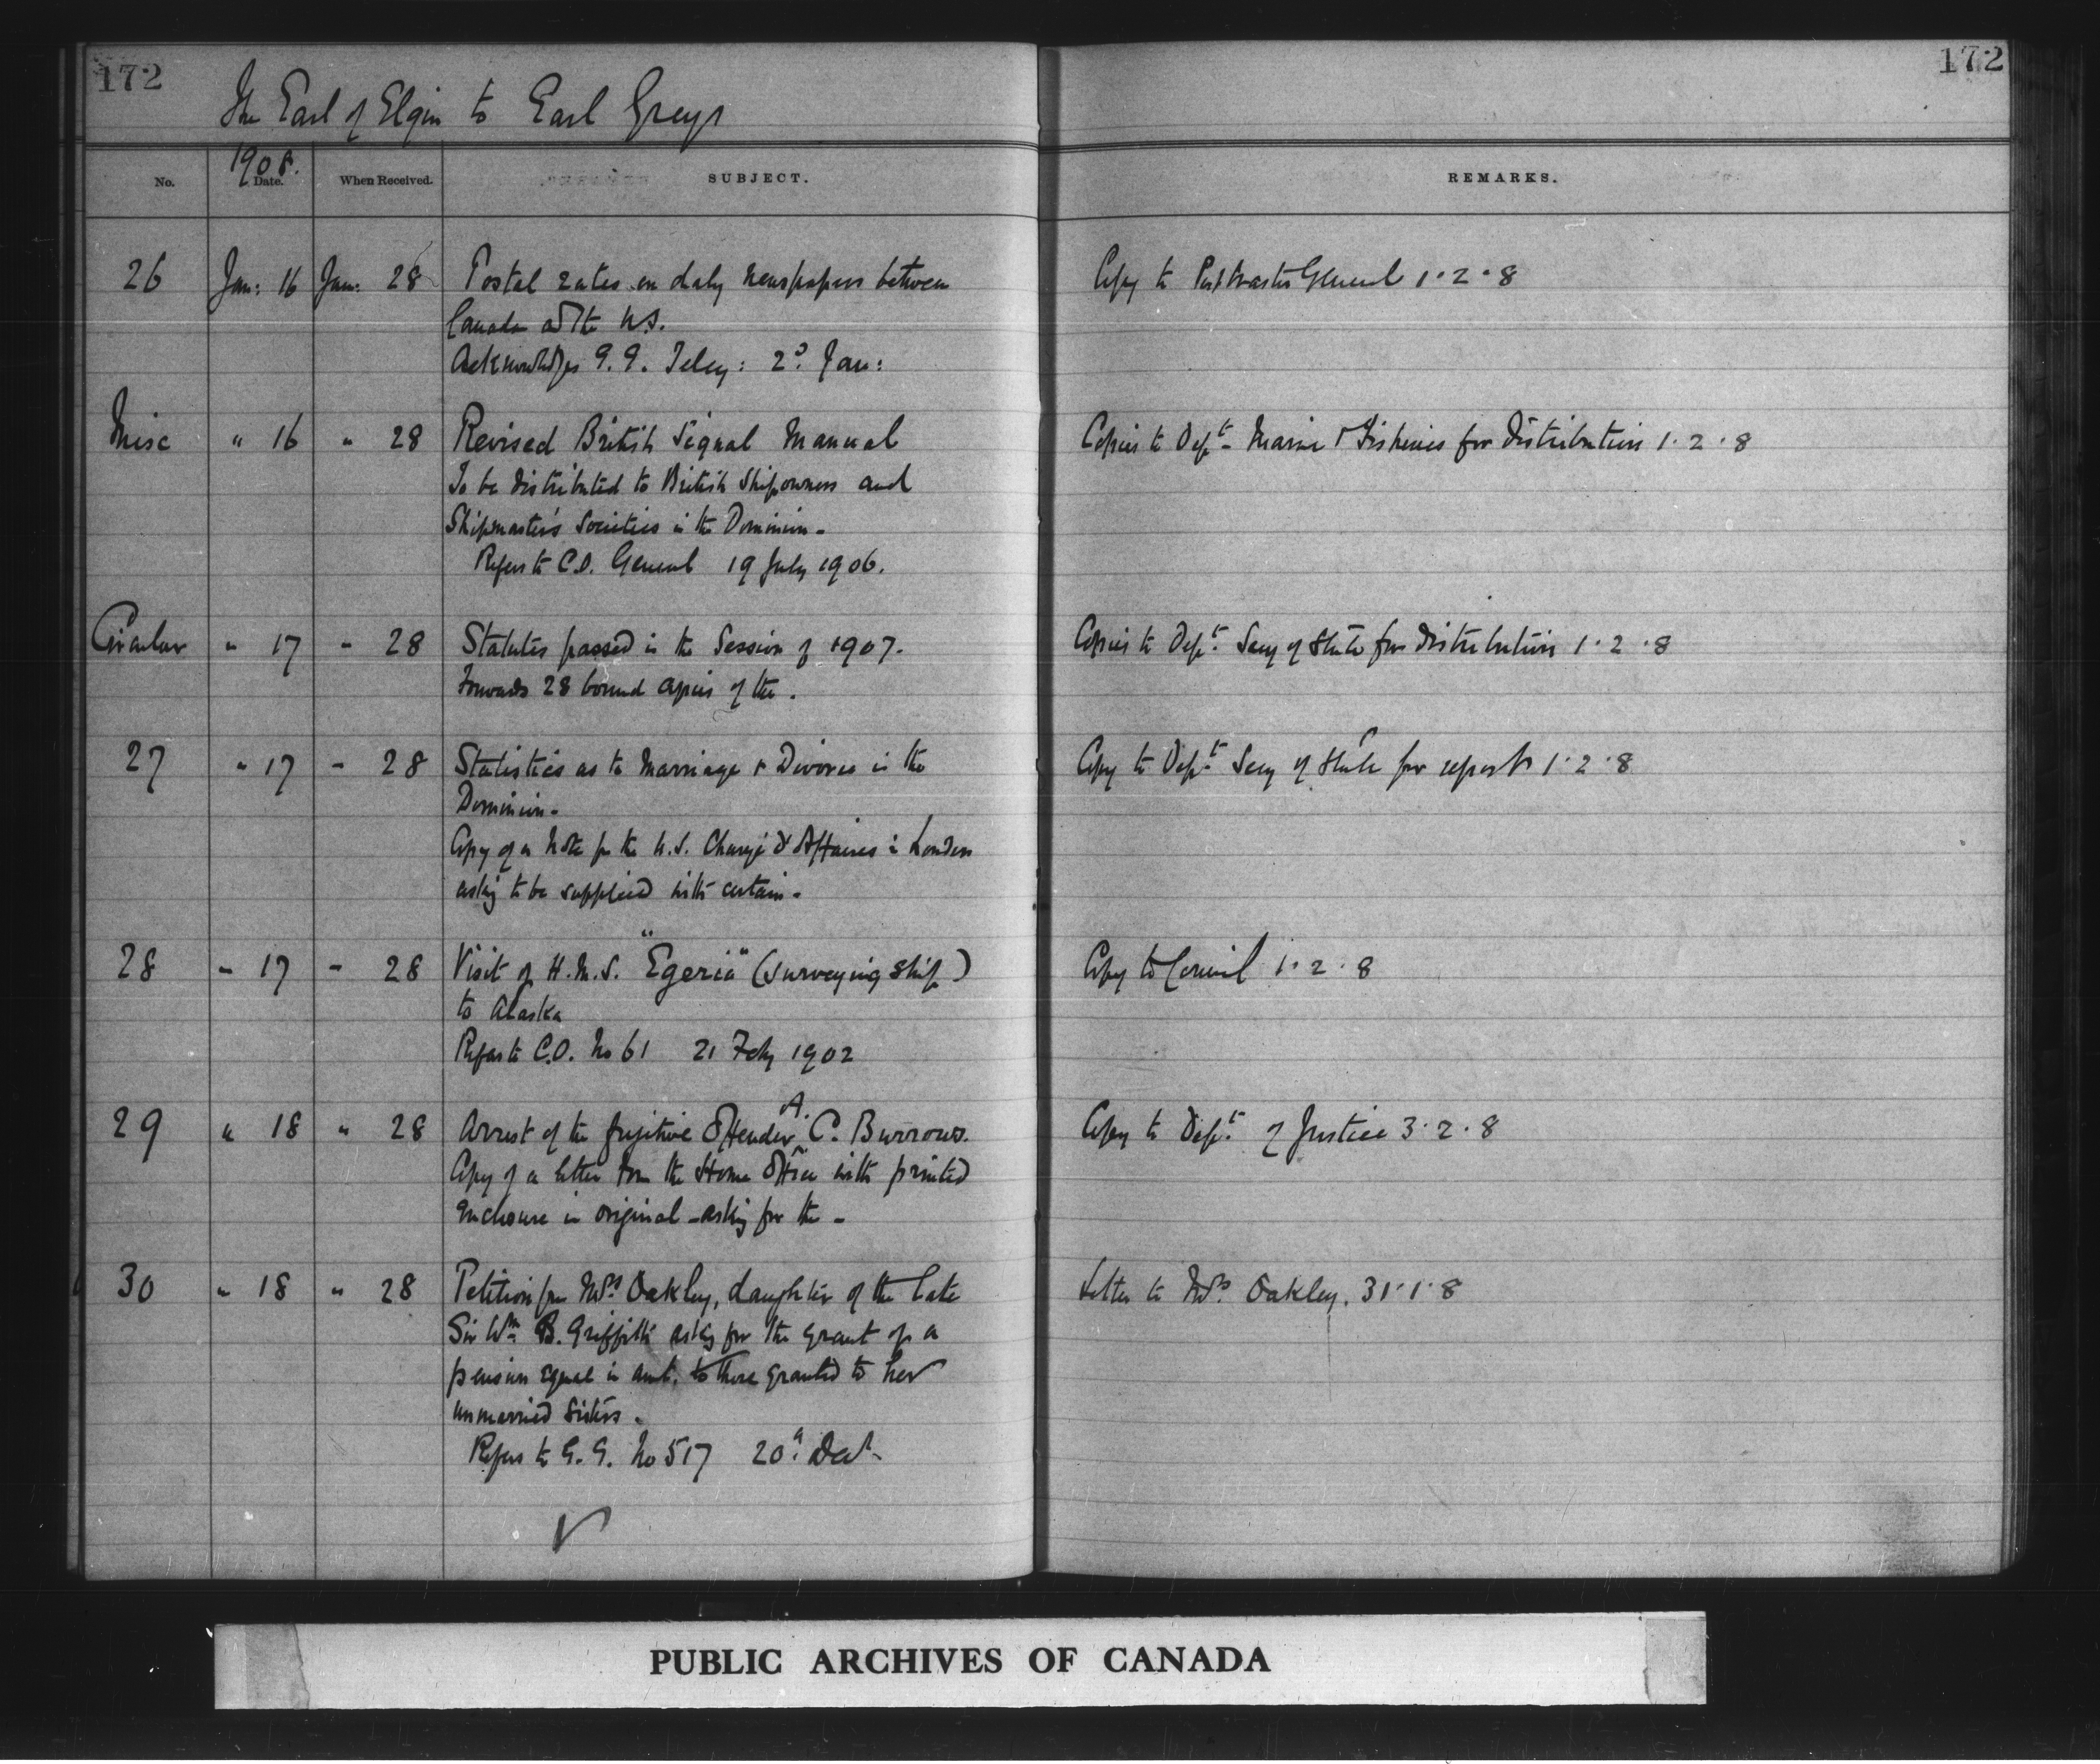 172
172
The Earl of Elgin to Earl Grey
1908.
No. Date. When Received. SUBJECT. REMARKS.
26 Jan: 16 Jan: 28 Postal rates on daly newspapers between Copy to Postmaster General 1·2·8
Canada and the U.S.
Acknowledges G.G. Teleg: 2d Jan:
Misc " 16 " 28 Revised British Signal Manual Copies to Dept Marine & Fisheries for distribution 1·2·8
To be distributed to British Shipowners and
Shipmaster's Societies in the Dominion -
Refers to C.O. General 19 July 1906.
Circular " 17 " 28 Statutes passed in the Session of 1907. Copies to Dept. Secy of State for distribution 1·2·8
Forwards 28 bound copies of the.
27 " 17 " 28 Statistics as to Marriage & Divorce in the Copy to Dept Secy of State for report 1·2·8
Dominion -
Copy of a Note fr the U.S. Chargé d'Affaires in London
asking to be supplied with certain -
28 " 17 " 28 Visit of H.M.S. "Egeria" (surveying ship) Copy to Council 1·2·8
to Alaska
Refers to C.O. No 61 21 Feby 1902
29 " 18 " 28 Arrest of the fugitive Offender A. C. Burrows. Copy to Dept. of Justice 3·2·8
Copy of a letter from the Home Office with printed
enclosure in original - asking for the -
30 " 18 " 28 Petition fr Mrs Oakley, daughter of the late Letter to Mrs. Oakley. 31·1·8
Sir Wm B. Griffith asking for the grant of a
pension equal in amt. to those granted to her
unmarried sisters.
Refers to G.G. No 517 20th Decr
PUBLIC ARCHIVES OF CANADA